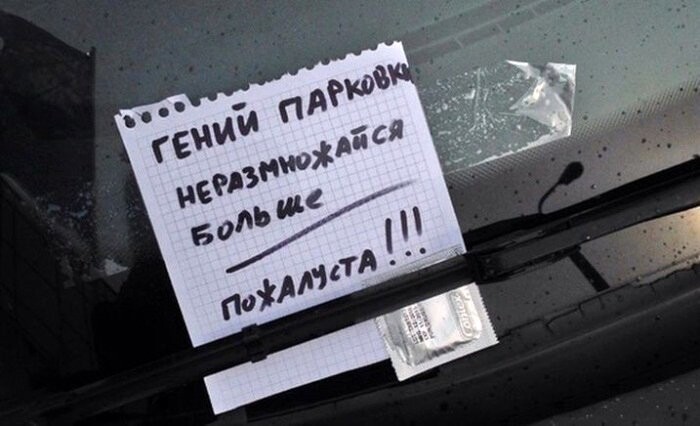 ГЕНИЙ ПАРКОВКИ
НЕРАЗМНОЖАЙСЯ
БОЛЬШЕ
ПОЖАЛУСТА!!!